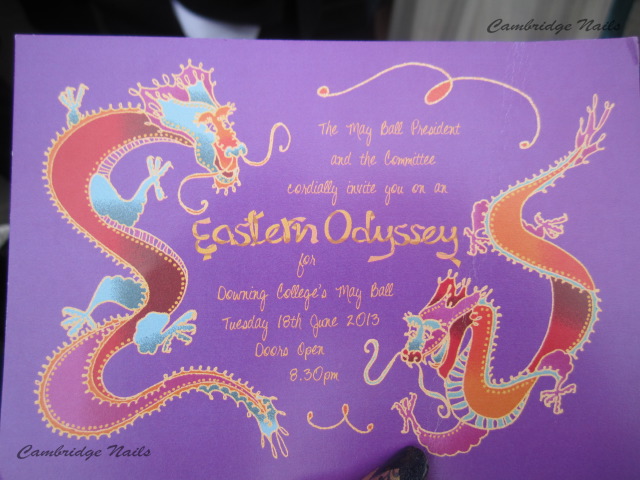 Cambridge Nails
The May Ball President
and the Committee
cordially invite you on an
Eastern Odyssey
for
Downing College's May Ball
Tuesday 18th June 2013
Doors Open
8.30pm
Cambridge Nails